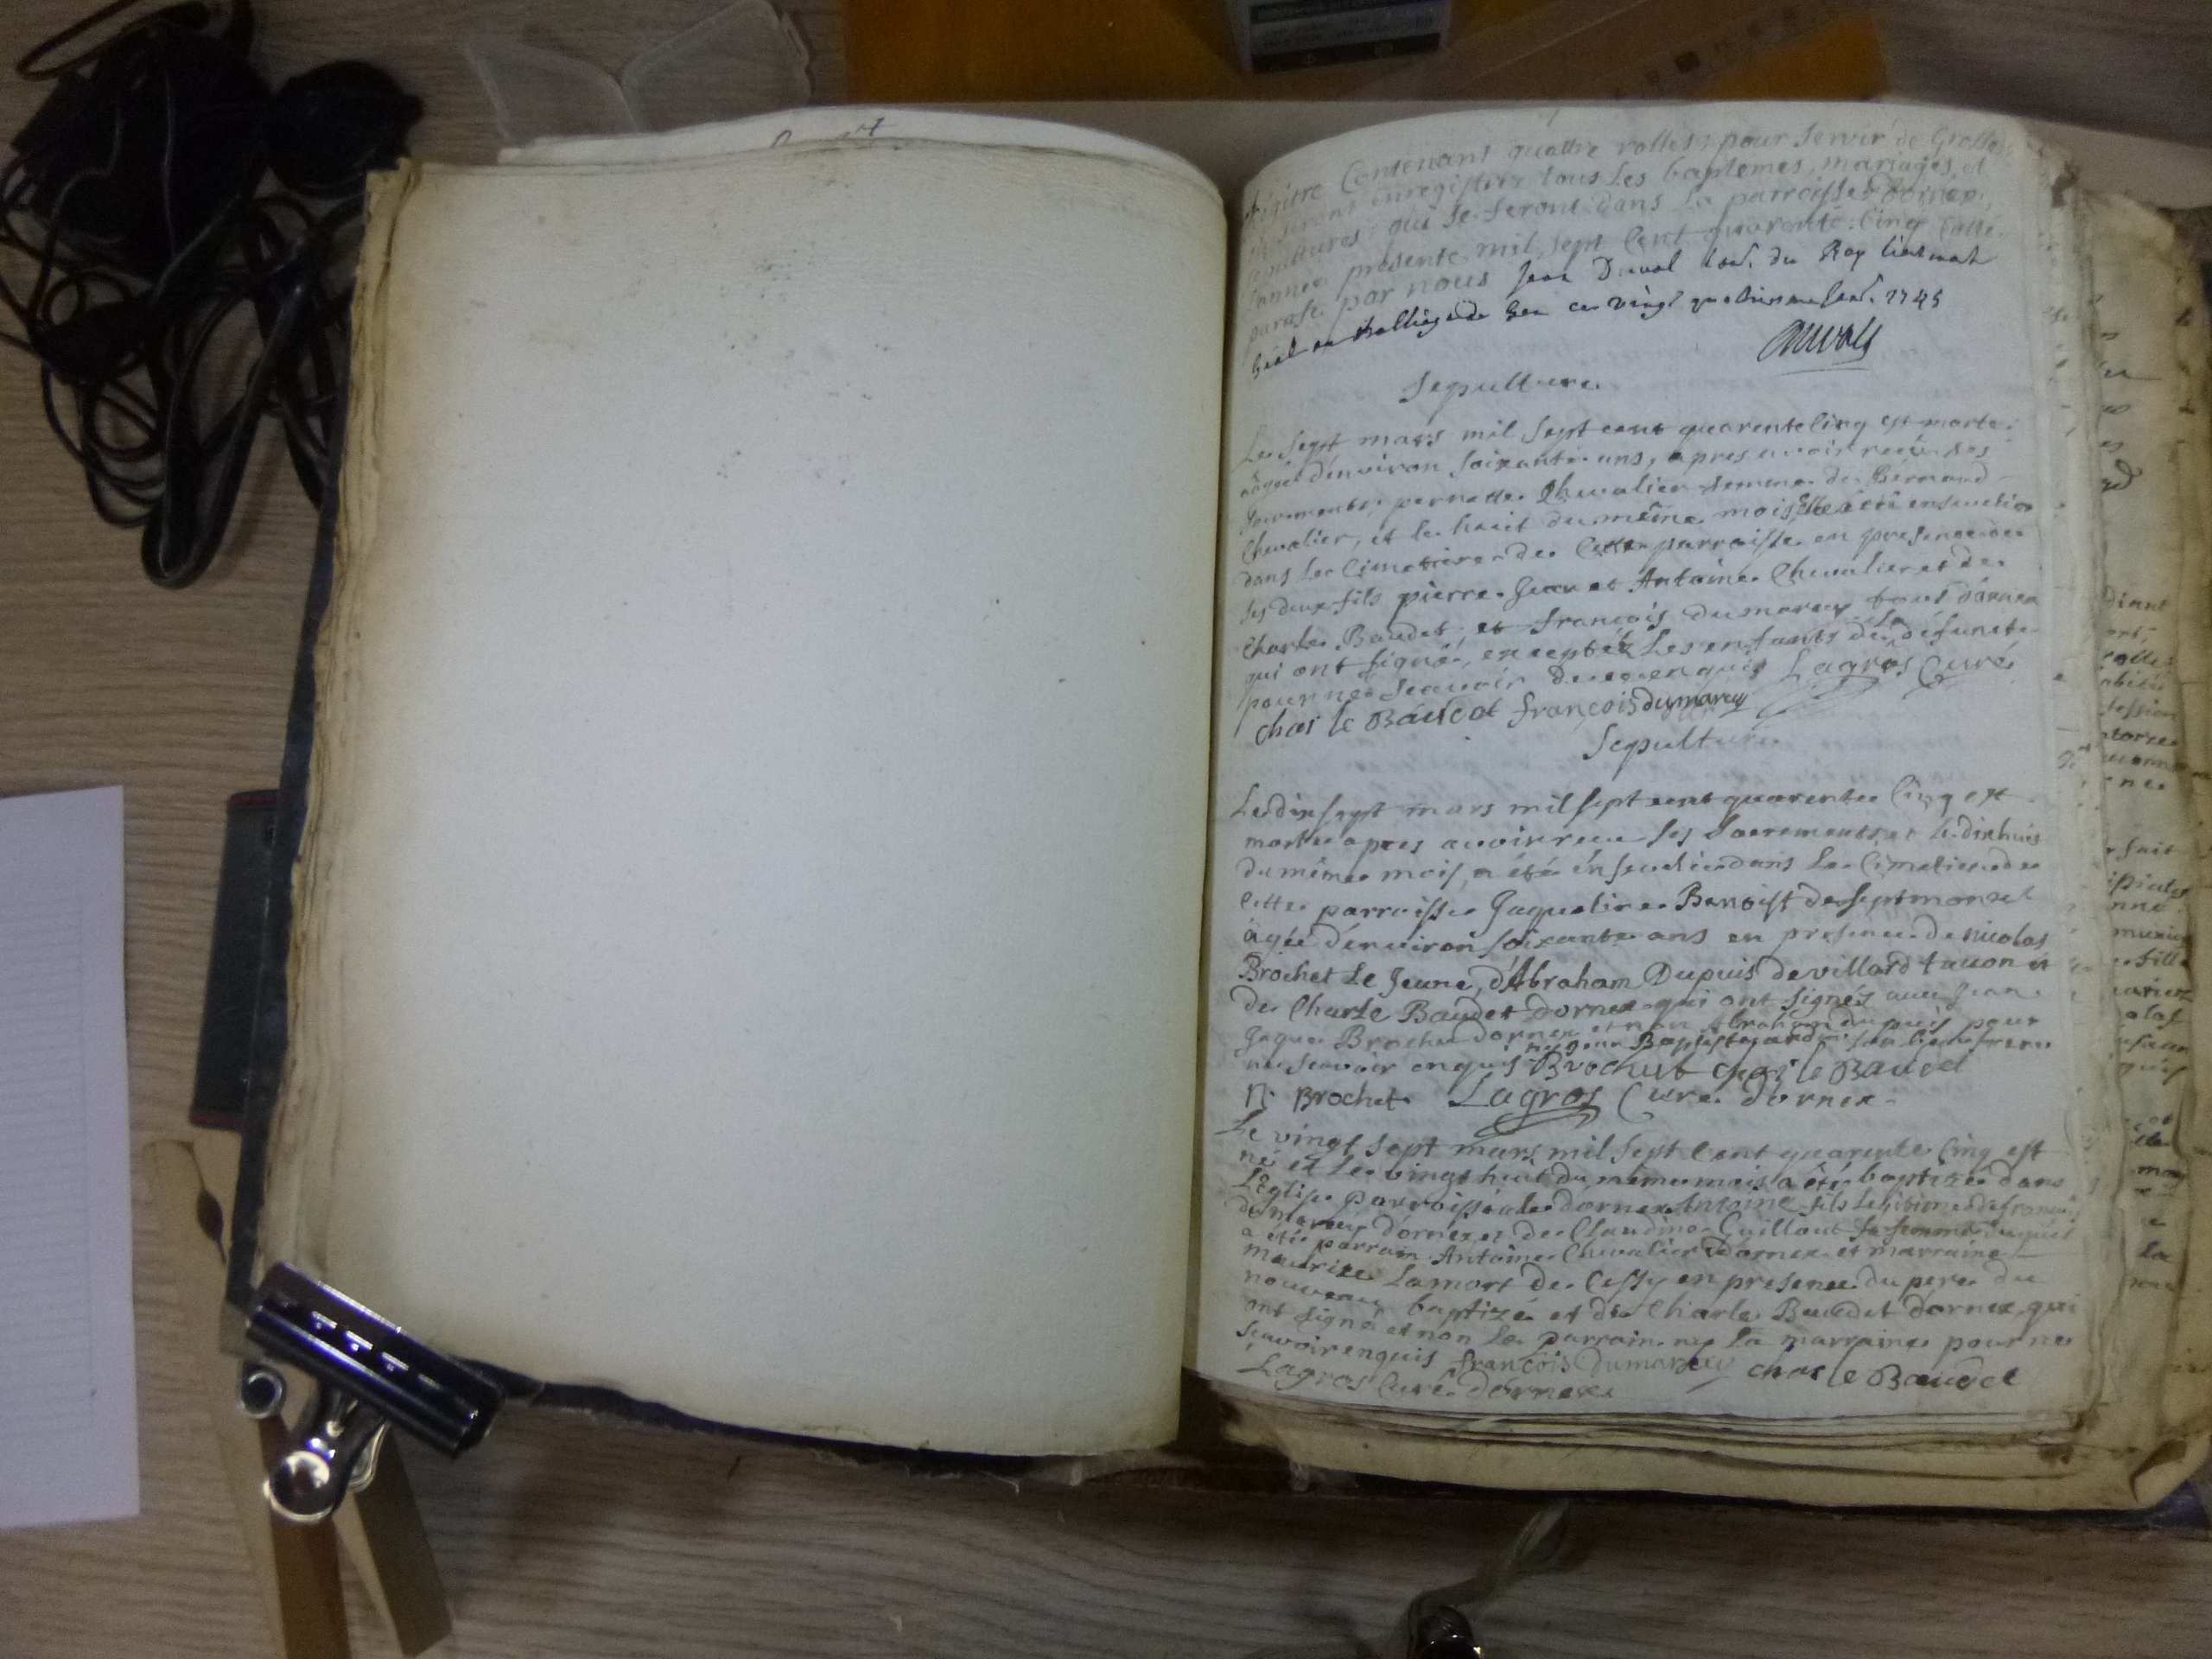 Contenant quattre rolles pour servir de Grosse
enregistrés tous les baptemes, mariages, et
sepultures qui se feront dans la parroisse dornex
l'année presente mil sept cent quarente cinq
parafé par nous Jean Duval du Roy Lieutenant
au Balliage de Gex ce vingt 1745
Duval
Sepulture
Le sept mars mil sept cent quarente cinq est morte
âgée d'environ soixante ans, apres avoir reçu ses
sacrements, pernette Chevalier femme de Bernard
Chevalier, et le huit du même mois Elle a été ensevelie
dans le Cimetiere de Cette parroisse en presence de
ses deux fils pierre Jean et Antoine Chevalier et de
Charle Baudet, et francois dumarey tous dornex
qui ont signé, exceptéz les enfants de la défuncte
pour ne scavoir de ce enquis Lagros Curé
charle Baudet francois dumarey
Sepulture
Le dix sept mars mil sept cent quarente Cinq est
morte apres avoir reçu ses Sacrements et le dix huit
du même mois a été ensevelie dans le Cimetiere de
Cette parroisse Jaqueline Benoist de septmoncel
âgée d'environ soixante ans en presence de nicolas
Brochet Le Jeune, d'Abraham Dupuis de villard tacon et
de Charle Baudet dornex qui ont signés avec Jean
Jaque Brochet dornex et non Abraham dupuis pour
ny Jean Baptiste
ne scavoir enquis Brochet charle Baudet
N. Brochet Lagros Curé d'ornex
Le vingt sept mars mil sept Cent quarente Cinq est
né et le vingt huit du même mois a été baptizé dans
L'Eglise parroissiale dornex Antoine fils legitime de francois
dumarey dornex et de Claudine Guillout sa femme duquel
a été parrain Antoine Chevalier dornex et marraine
maurize Lamort de Cessy en presence du pere du
nouveau baptizé et de Charle Baudet dornex qui
ont signé et non le parrain ny la marraine pour ne
scavoir enquis francois Dumarey charle Baudet
Lagros Curé dornex